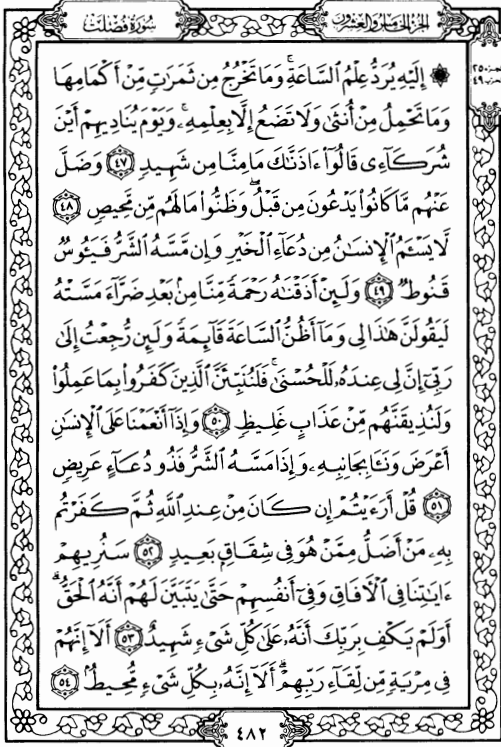 سُورَةُ فُصِّلَتْ
الجزء الخامس والعشرون
الجزء ٢٥
الحزب ٤٩
۞ إِلَيْهِ يُرَدُّ عِلْمُ ٱلسَّاعَةِۚ وَمَا تَخْرُجُ مِن ثَمَرَٰتٍ مِّنْ أَكْمَامِهَا
وَمَا تَحْمِلُ مِنْ أُنثَىٰ وَلَا تَضَعُ إِلَّا بِعِلْمِهِۦۚ وَيَوْمَ يُنَادِيهِمْ أَيْنَ
شُرَكَآءِى قَالُوٓا۟ ءَاذَنَّٰكَ مَا مِنَّا مِن شَهِيدٍ ٤٧ وَضَلَّ
عَنْهُم مَّا كَانُوا۟ يَدْعُونَ مِن قَبْلُۖ وَظَنُّوا۟ مَا لَهُم مِّن مَّحِيصٍ ٤٨
لَّا يَسْـَٔمُ ٱلْإِنسَٰنُ مِن دُعَآءِ ٱلْخَيْرِ وَإِن مَّسَّهُ ٱلشَّرُّ فَيَـُٔوسٌ
قَنُوطٌ ٤٩ وَلَئِنْ أَذَقْنَٰهُ رَحْمَةً مِّنَّا مِنۢ بَعْدِ ضَرَّآءَ مَسَّتْهُ
لَيَقُولَنَّ هَٰذَا لِى وَمَآ أَظُنُّ ٱلسَّاعَةَ قَآئِمَةً وَلَئِن رُّجِعْتُ إِلَىٰ
رَبِّىٓ إِنَّ لِى عِندَهُۥ لَلْحُسْنَىٰۚ فَلَنُنَبِّئَنَّ ٱلَّذِينَ كَفَرُوا۟ بِمَا عَمِلُوا۟
وَلَنُذِيقَنَّهُم مِّنْ عَذَابٍ غَلِيظٍ ٥٠ وَإِذَآ أَنْعَمْنَا عَلَى ٱلْإِنسَٰنِ
أَعْرَضَ وَنَـَٔا بِجَانِبِهِۦ وَإِذَا مَسَّهُ ٱلشَّرُّ فَذُو دُعَآءٍ عَرِيضٍ
٥١ قُلْ أَرَءَيْتُمْ إِن كَانَ مِنْ عِندِ ٱللَّهِ ثُمَّ كَفَرْتُم
بِهِۦ مَنْ أَضَلُّ مِمَّنْ هُوَ فِى شِقَاقٍۭ بَعِيدٍ ٥٢ سَنُرِيهِمْ
ءَايَٰتِنَا فِى ٱلْـَٔافَاقِ وَفِىٓ أَنفُسِهِمْ حَتَّىٰ يَتَبَيَّنَ لَهُمْ أَنَّهُ ٱلْحَقُّۗ
أَوَلَمْ يَكْفِ بِرَبِّكَ أَنَّهُۥ عَلَىٰ كُلِّ شَىْءٍ شَهِيدٌ ٥٣ أَلَآ إِنَّهُمْ
فِى مِرْيَةٍ مِّن لِّقَآءِ رَبِّهِمْۗ أَلَآ إِنَّهُۥ بِكُلِّ شَىْءٍ مُّحِيطٌۢ ٥٤
٤٨٢